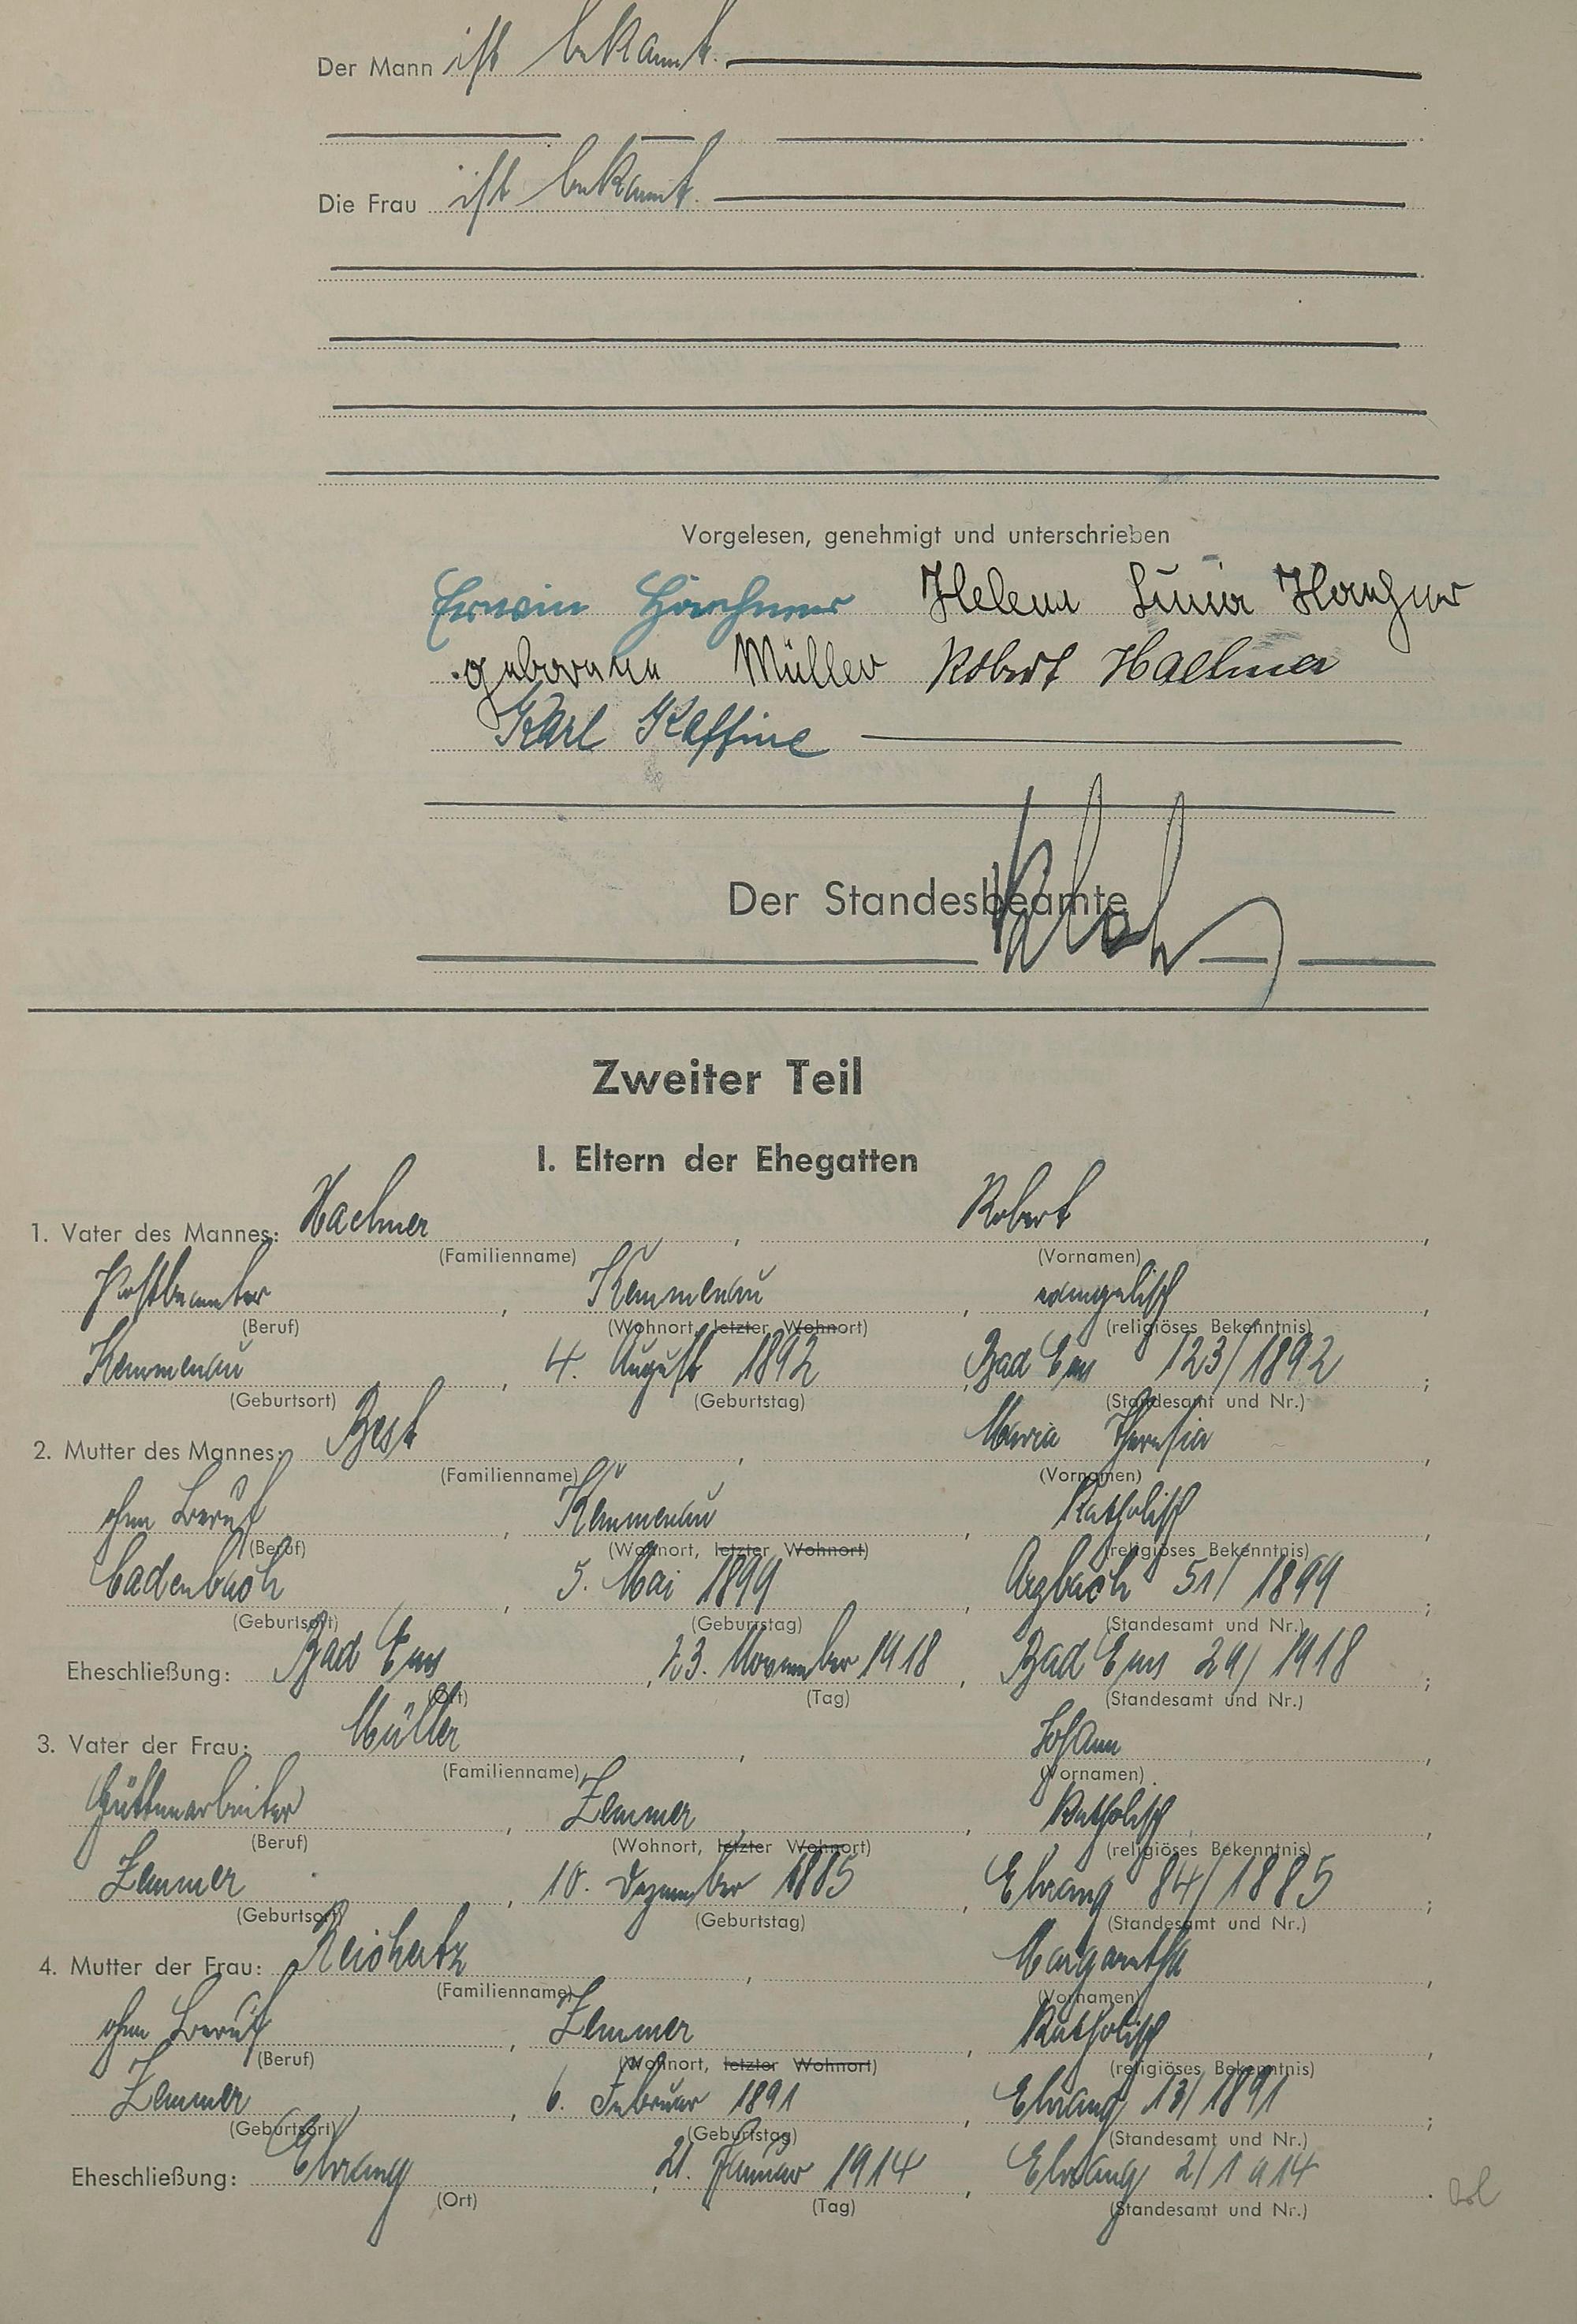 Der Mann ist bekannt.
Die Frau ist bekannt.
Vorgelesen, genehmigt und unterschrieben
Erwin Helena
geborene Müller Robert Haehner
Karl Kaffine
Der Standesbeamte
Zweiter Teil
I. Eltern der Ehegatten
1. Vater des Mannes: Haehner, Robert,
(Familienname) (Vornamen)
Postbeamter, Kemmenau, evangelisch,
(Beruf) (Wohnort, letzter Wohnort) (religiöses Bekenntnis)
Kemmenau, 4. August 1892, Bad Ems 123/1892;
(Geburtsort) (Geburtstag) (Standesamt und Nr.)
2. Mutter des Mannes: Best, Maria Theresia,
(Familienname) (Vornamen)
ohne Beruf, Kemmenau, katholisch,
(Beruf) (Wohnort, letzter Wohnort) (religiöses Bekenntnis)
Cadenbach, 5. Mai 1899, Arzbach 51/1899;
(Geburtsort) (Geburtstag) (Standesamt und Nr.)
Eheschließung: Bad Ems, 23. November 1918, Bad Ems 29/1918;
(Ort) (Tag) (Standesamt und Nr.)
3. Vater der Frau: Müller, Johann,
(Familienname) (Vornamen)
Hüttenarbeiter, Zemmer, katholisch,
(Beruf) (Wohnort, letzter Wohnort) (religiöses Bekenntnis)
Zemmer, 10. Dezember 1885, Ehrang 84/1885;
(Geburtsort) (Geburtstag) (Standesamt und Nr.)
4. Mutter der Frau: Reichertz, Margaretha,
(Familienname) (Vornamen)
ohne Beruf, Zemmer, katholisch,
(Beruf) (Wohnort, letzter Wohnort) (religiöses Bekenntnis)
Zemmer, 6. Februar 1891, Ehrang 13/1891;
(Geburtsort) (Geburtstag) (Standesamt und Nr.)
Eheschließung: Ehrang, 21. Januar 1914, Ehrang 2/1914.
(Ort) (Tag) (Standesamt und Nr.)